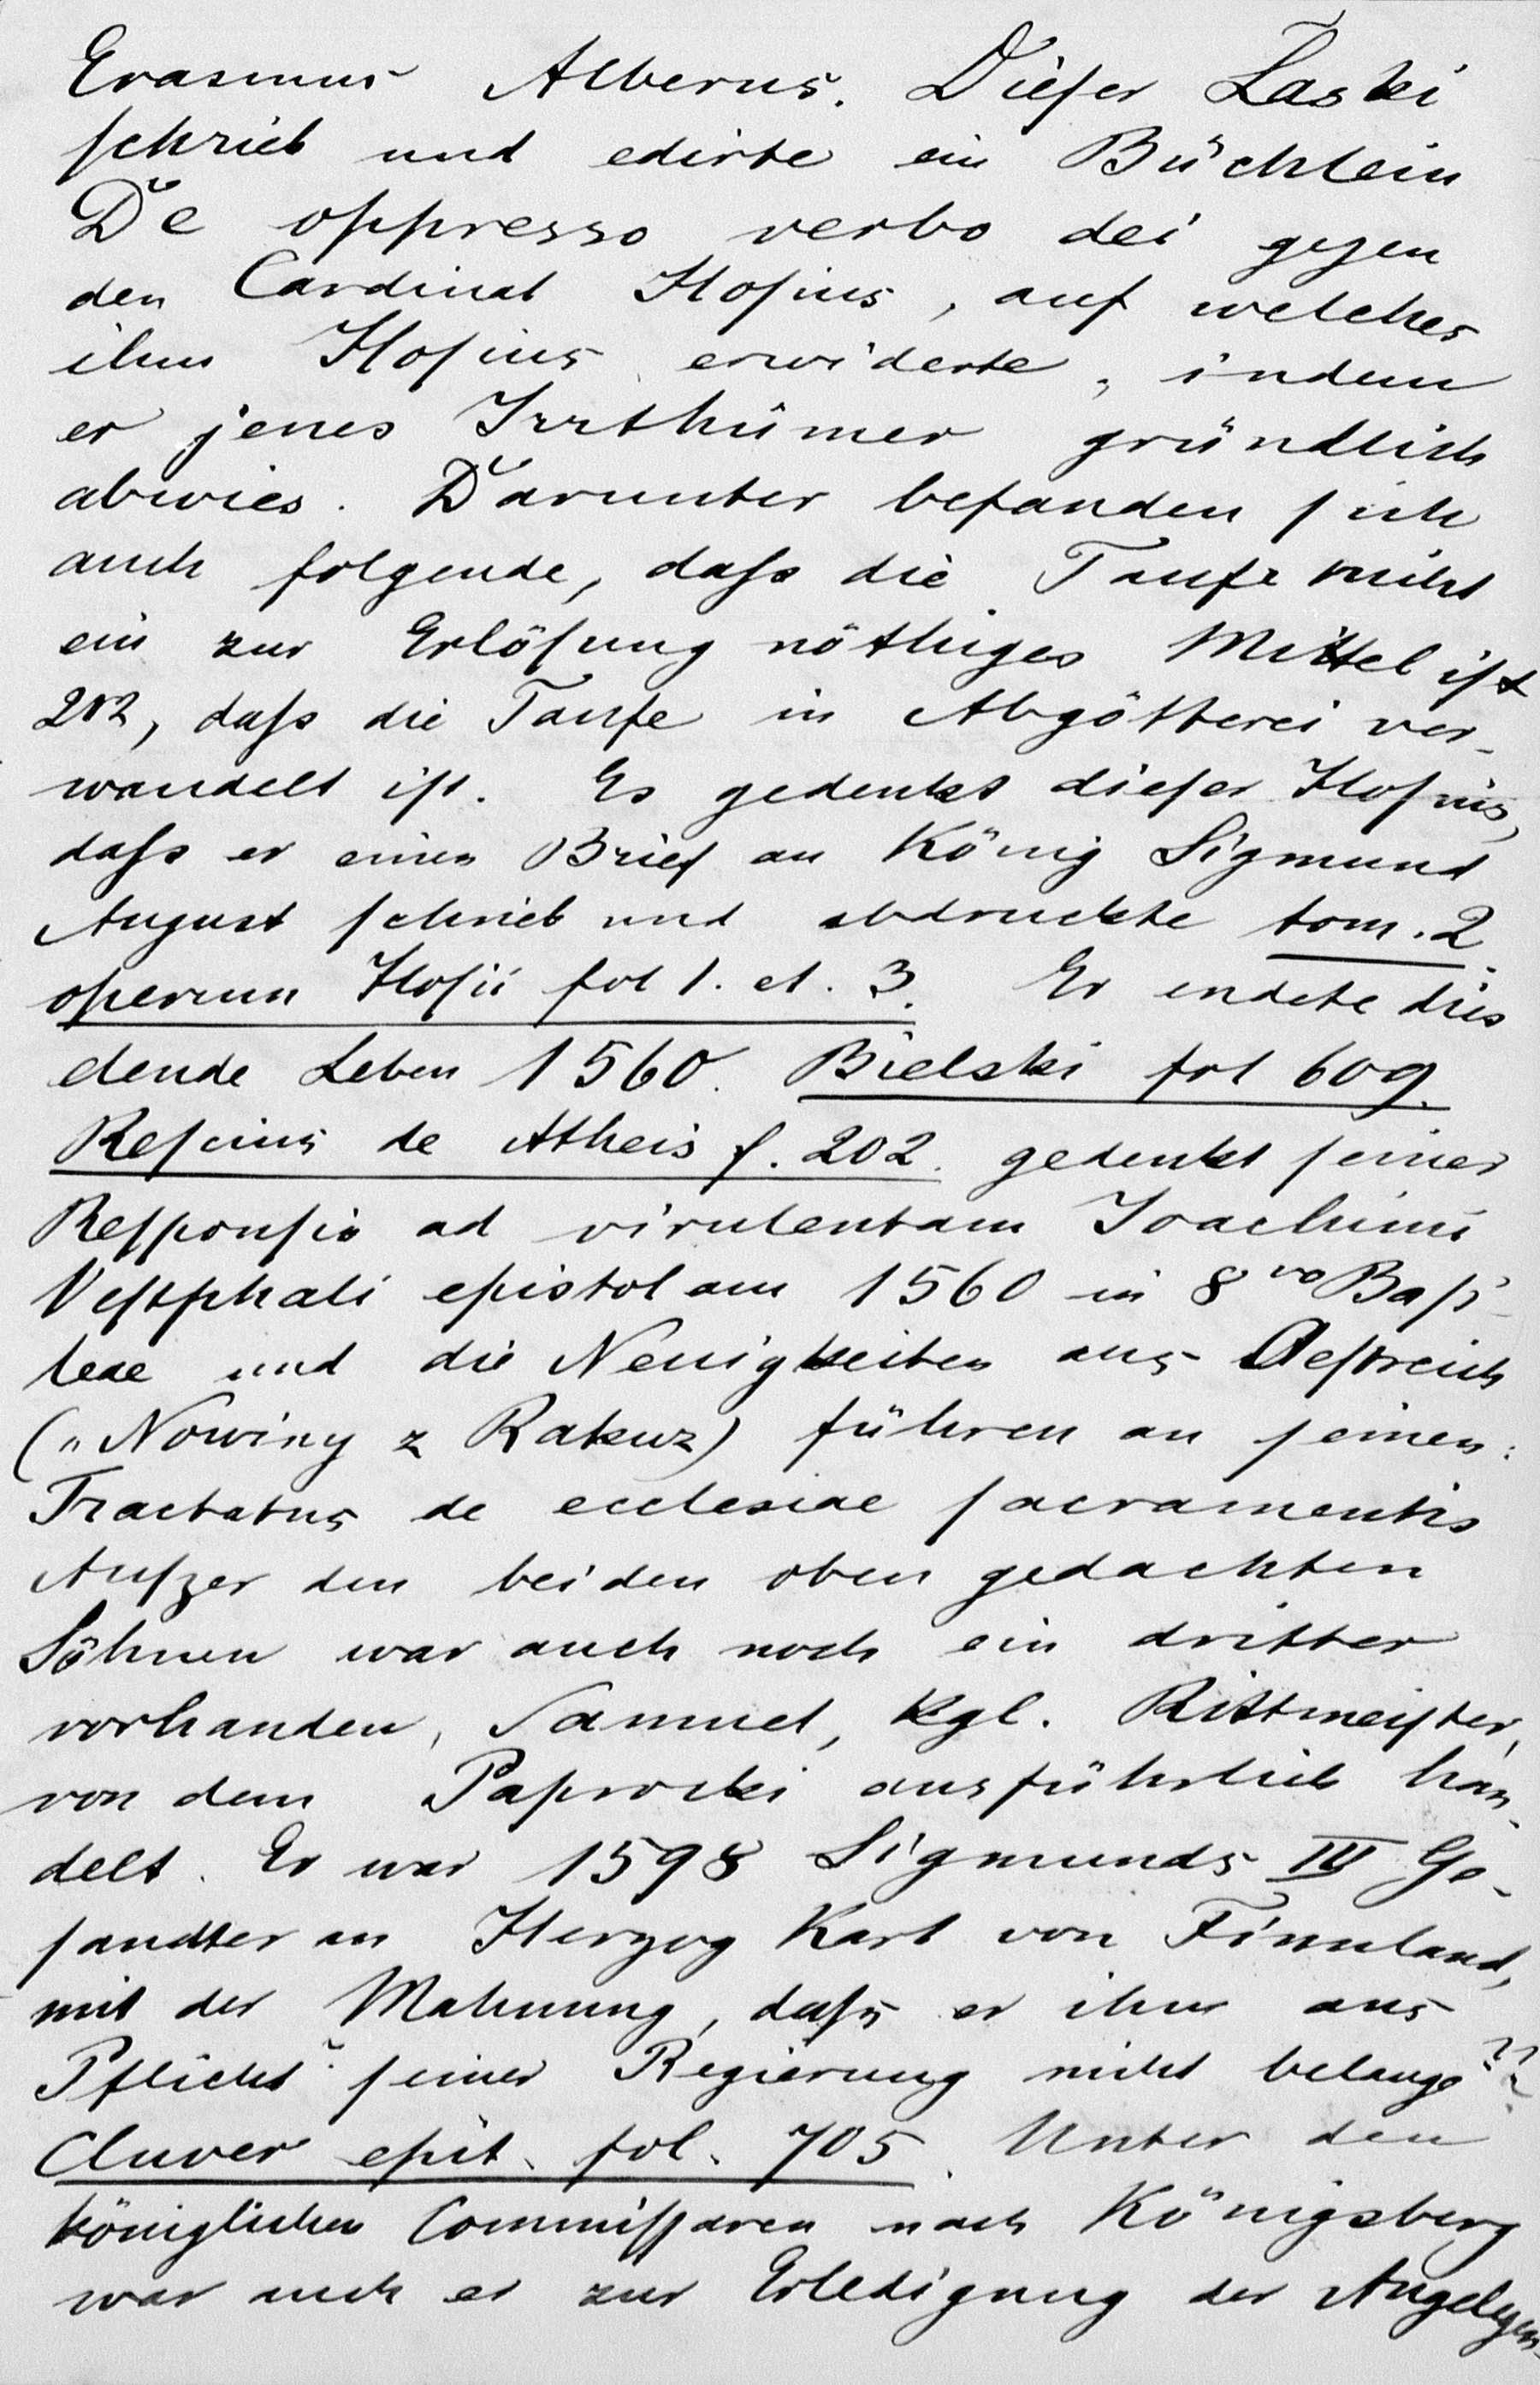 Erasmus Alberus. Dieser Łaski
schrieb und edirte ein Büchlein
De oppresso verbo dei gegen
den Cardinal Hosius, auf welches
ihm Hosius erwiderte, indem
er jenes Irrthümer gründlich
abwies. Darunter befanden sich
auch folgende, dass die Taufe nicht
ein zur Erlösung nöthiges Mittel ist
dass die Taufe in Abgötterei ver-
wandelt ist. Es gedenkt dieser Hosius,
dass er einen Brief an König Sigmund
August schrieb und abdruckte tom. 2
operum Hosii fol 1. et. 3. Er endete dies
elende Leben 1560. Bielski fol 609.
Rescius de Atheis f. 202. gedenkt seiner
Responsio ad virulentam Joachimi
Vestphali epistolam 1560 in 8vo Basi-
leae und die Neuigkeiten aus Oestreich
(„Nowiny z Rakuz) führen an seinen:
Tractatus de ecclesiae sacramentis
Auszer den beiden oben gedachten
Söhnen war auch noch ein dritter
vorhanden, Samuel, kgl. Rittmeister,
von dem Paprocki ausführlich han-
delt. Er war 1598 Sigmunds III Ge-
sandter an Herzog Karl von Finnland,
mit der Mahnung, dass er ihm aus
Pflicht seiner Regierung nicht belange??
Cluver epit. fol. 705. Unter den
königlichen Commissaren nach Königsberg
war auch er zur Erledigung der Angelegen-